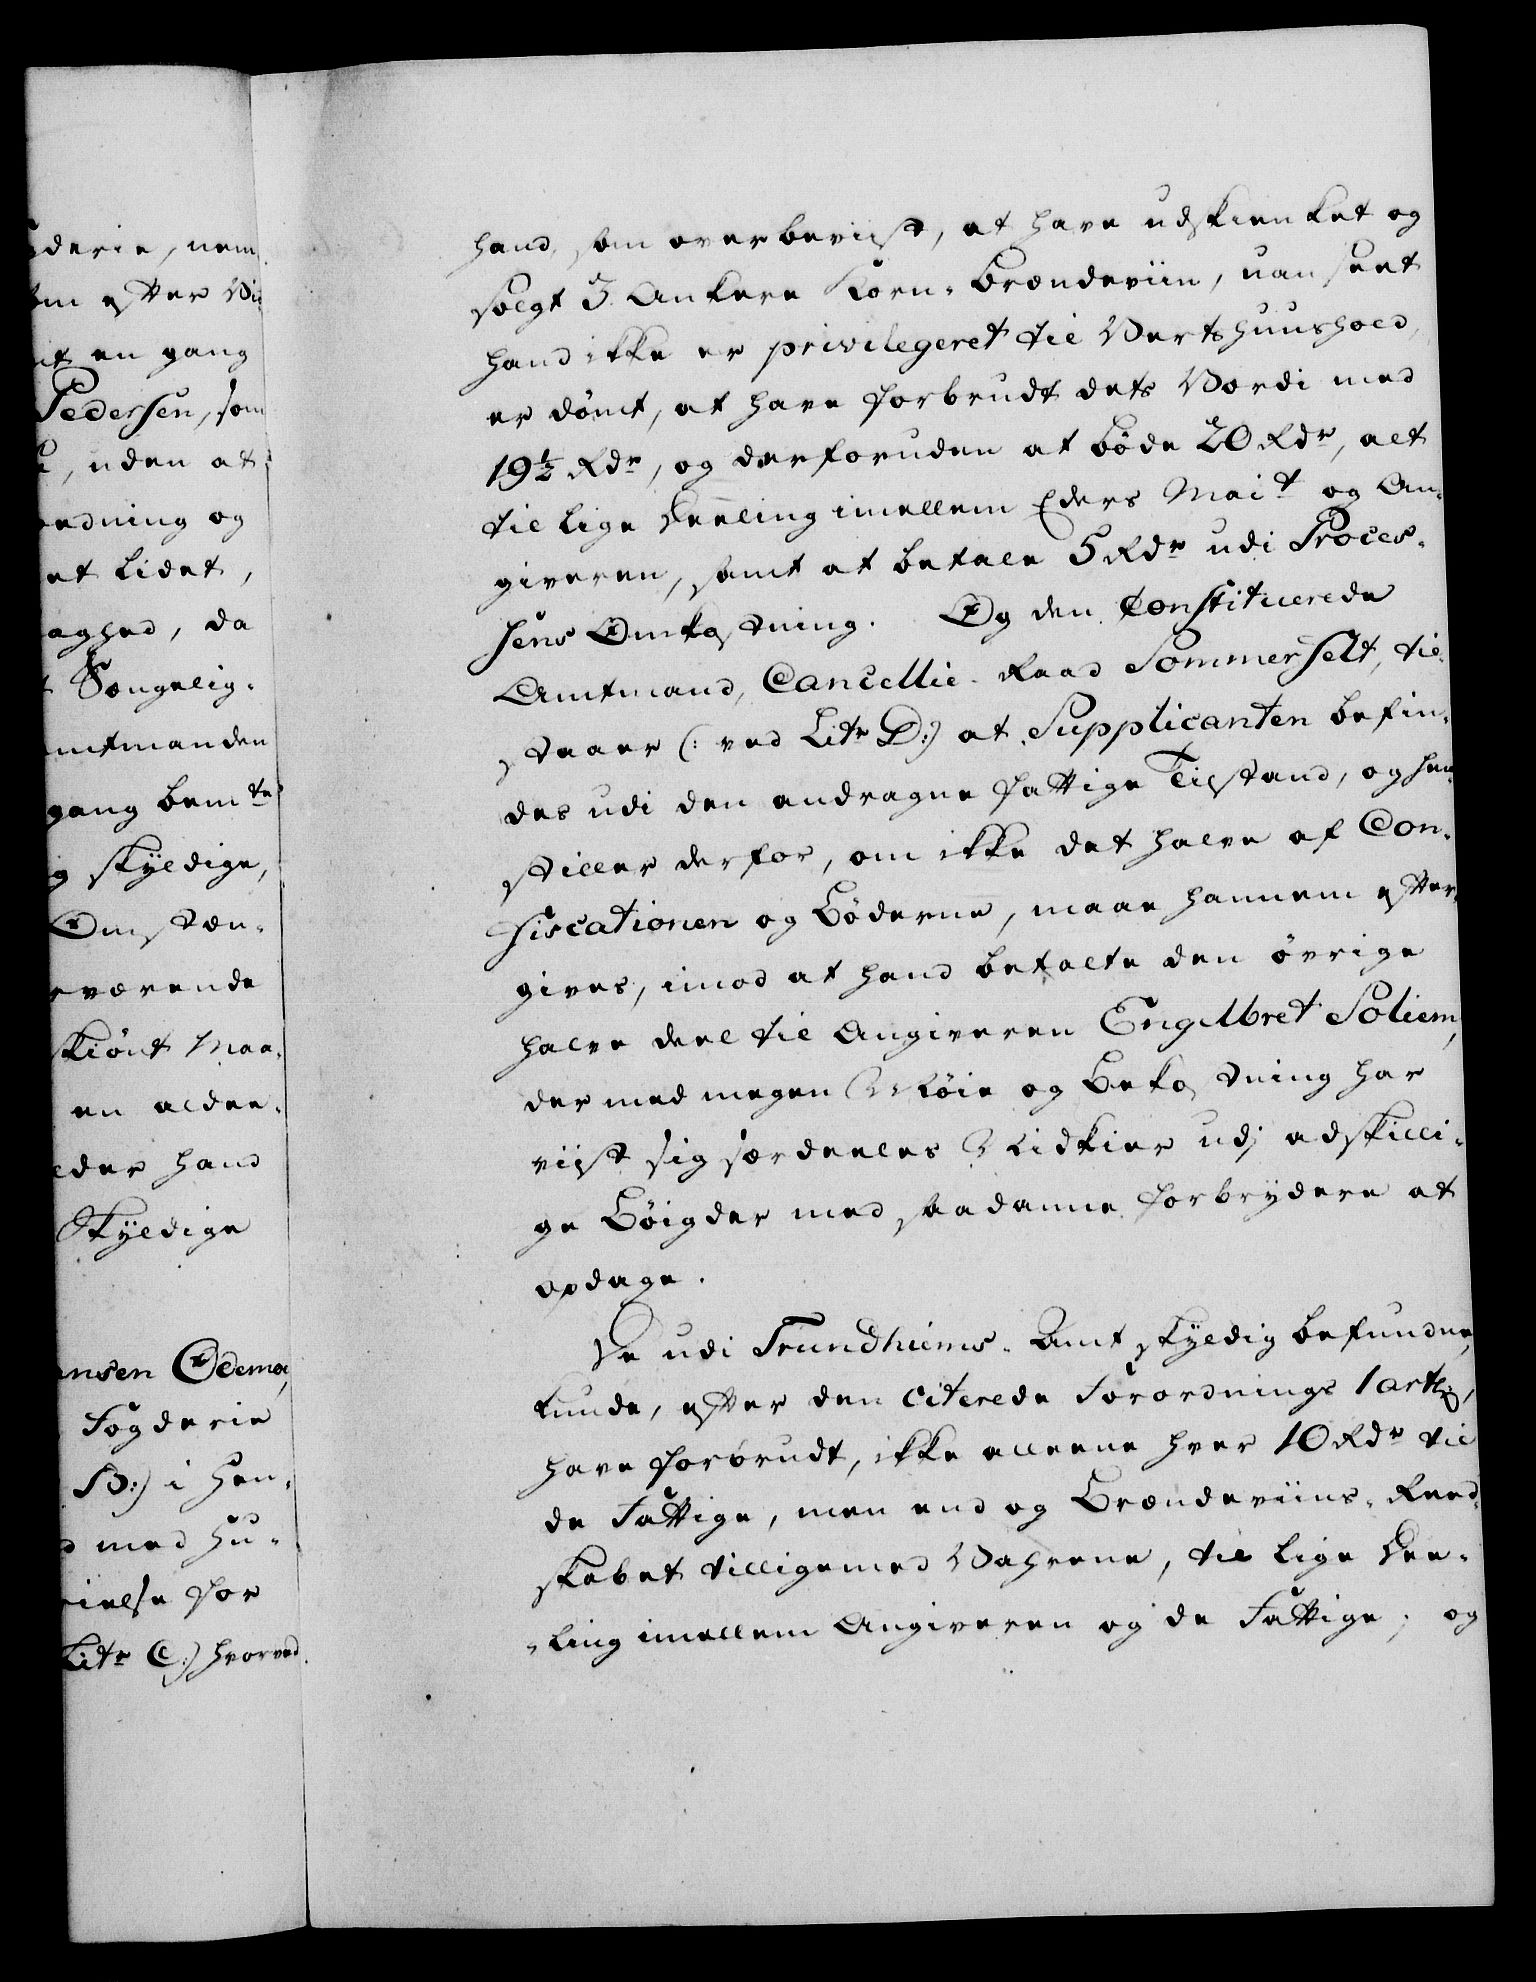 gderie, nem
om efter Vi-
mt en gang
Pedersen, som
, uden at
ordning og
et lidet,
aghed, da
Sengelig-
mtmanden
gang bemte
g skyldige,
Omstæn-
værende
skiønt Maa-
en aldee-
lder hand
Skyldige
ansen Edema,
Fogderie
B:) i hen-
d med Hu-
ielse for
Litr C:) hvorved
hand, som overbeviist, at have udskienket og
solgt 3 Ankere Korn-Brændeviin, uanseet
hand ikke er privilegeret til Vertshuushold,
er dømt, at have forbrudt dets Værdi med
19½ Rdr, og derforuden at bøde 20 Rdr, alt
til lige Deeling imellem Eders Mait og An-
giveren, samt at betale 5 Rdr udi Proces-
sens Omkostning. Og den Constituerede
Amtmand, Cancellie-Raad Sommerfelt, til-
staaer (: ved Litr D:) at Supplicanten befin-
des udi den andragne fattige Tilstand, og hen-
stiller derfor, om ikke det halve af Con-
fiscationen og Bøderne, maae hannem efter-
gives, imod at hand betalte den øvrige
halve deel til Angiveren Engelbret Soliem,
der med megen Møie og Bekostning har
viist sig særdeeles Nidkier udj adskilli-
ge Bøigder med saadanne Forbrydere at
opdage.
De udi Trundhiems-Amt skyldig befundne,
kunde, efter den citerede Forordnings 1 artl:,
have forbrudt, ikke alleene hver 10 Rdr til
de Fattige, men end og Brændeviins-Reed-
skabet tilligemed Vahrene, til lige Dee-
-ling imellem Angiveren og de Fattige; og